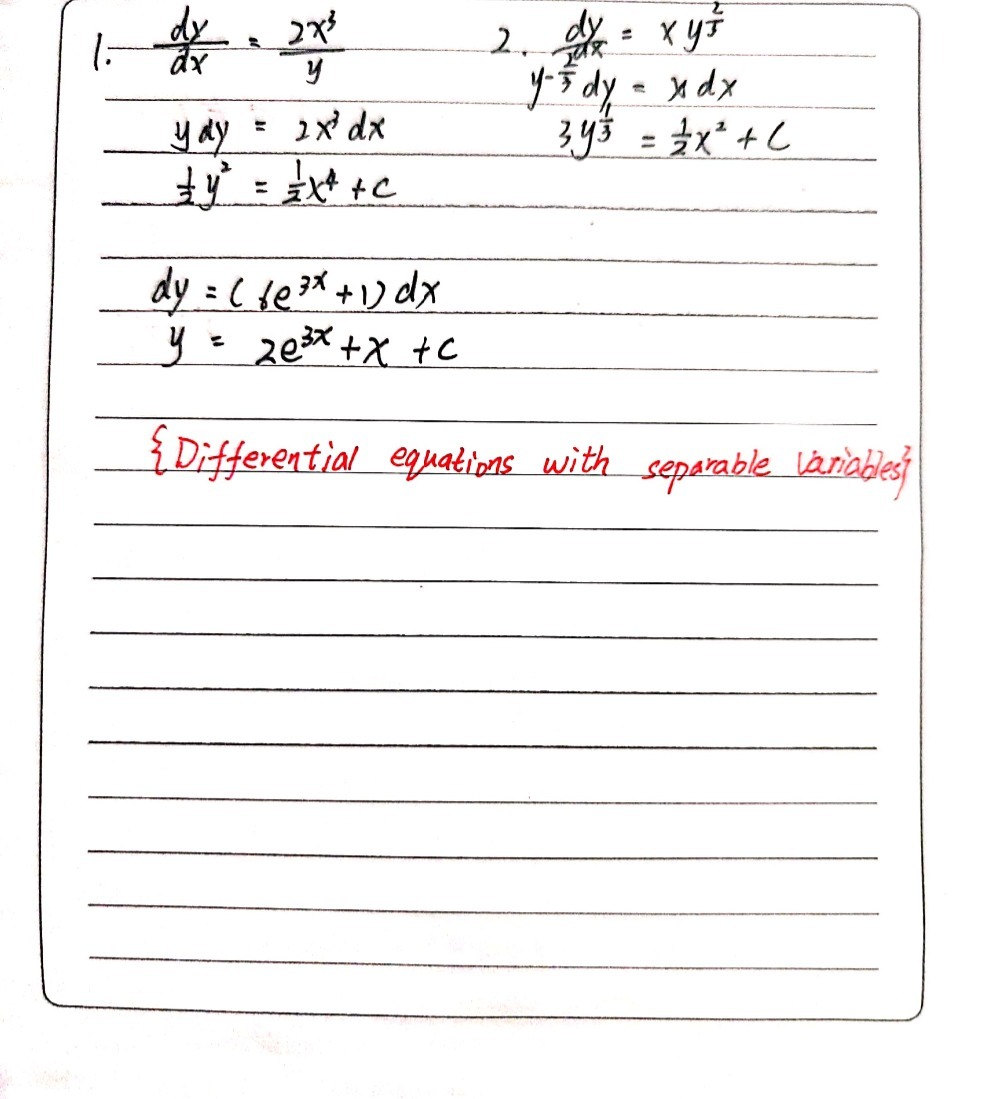 1. dy/dx = 2x³/y
y dy = 2x³ dx
½y² = ½x⁴ + c
2. dy/dx = x y^(2/3)
y^(-2/3) dy = x dx
3y^(1/3) = ½x² + C
dy = (6e^(3x) + 1) dx
y = 2e^(3x) + x + c
{Differential equations with separable variables}